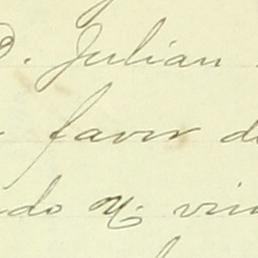 D. Julian
favor de
ndo y. vin